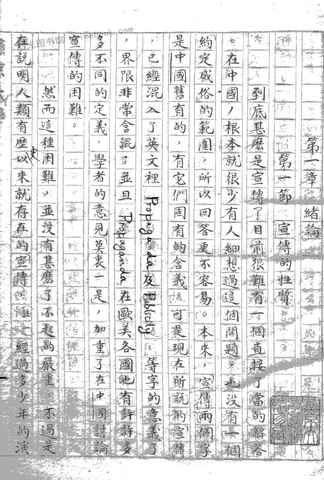 第一章 緒論
第一節 宣傳的性質
到底甚麼是宣傳？目前很難有一個直接了當的答
。在中國，根本就很少有人細想過這個問題。也沒有一個
約定成俗的範圍，所以回答更不容易。本來，宣傳兩個字
是中國舊有的，有它們固有的含義，可是現在所說的宣傳
，已經混入了英文裡 Propaganda 及 Publicity 等字的意義了
界限非常含混。並且 Propaganda 在歐美各國也有許許多
多不同的定義，學者的意見莫衷一是，加重了在中國討論
宣傳的困難。
然而這種困難，並沒有甚麼了不起的嚴重。不過是
在說明人類有歷史以來就存在的宣傳 經過多少年的演